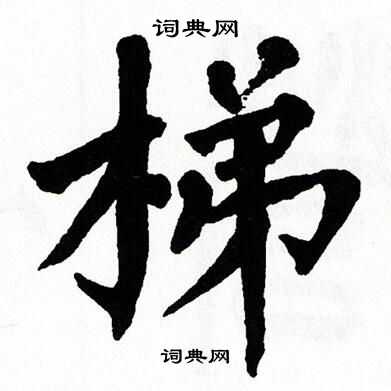 词典网
梯
词典网